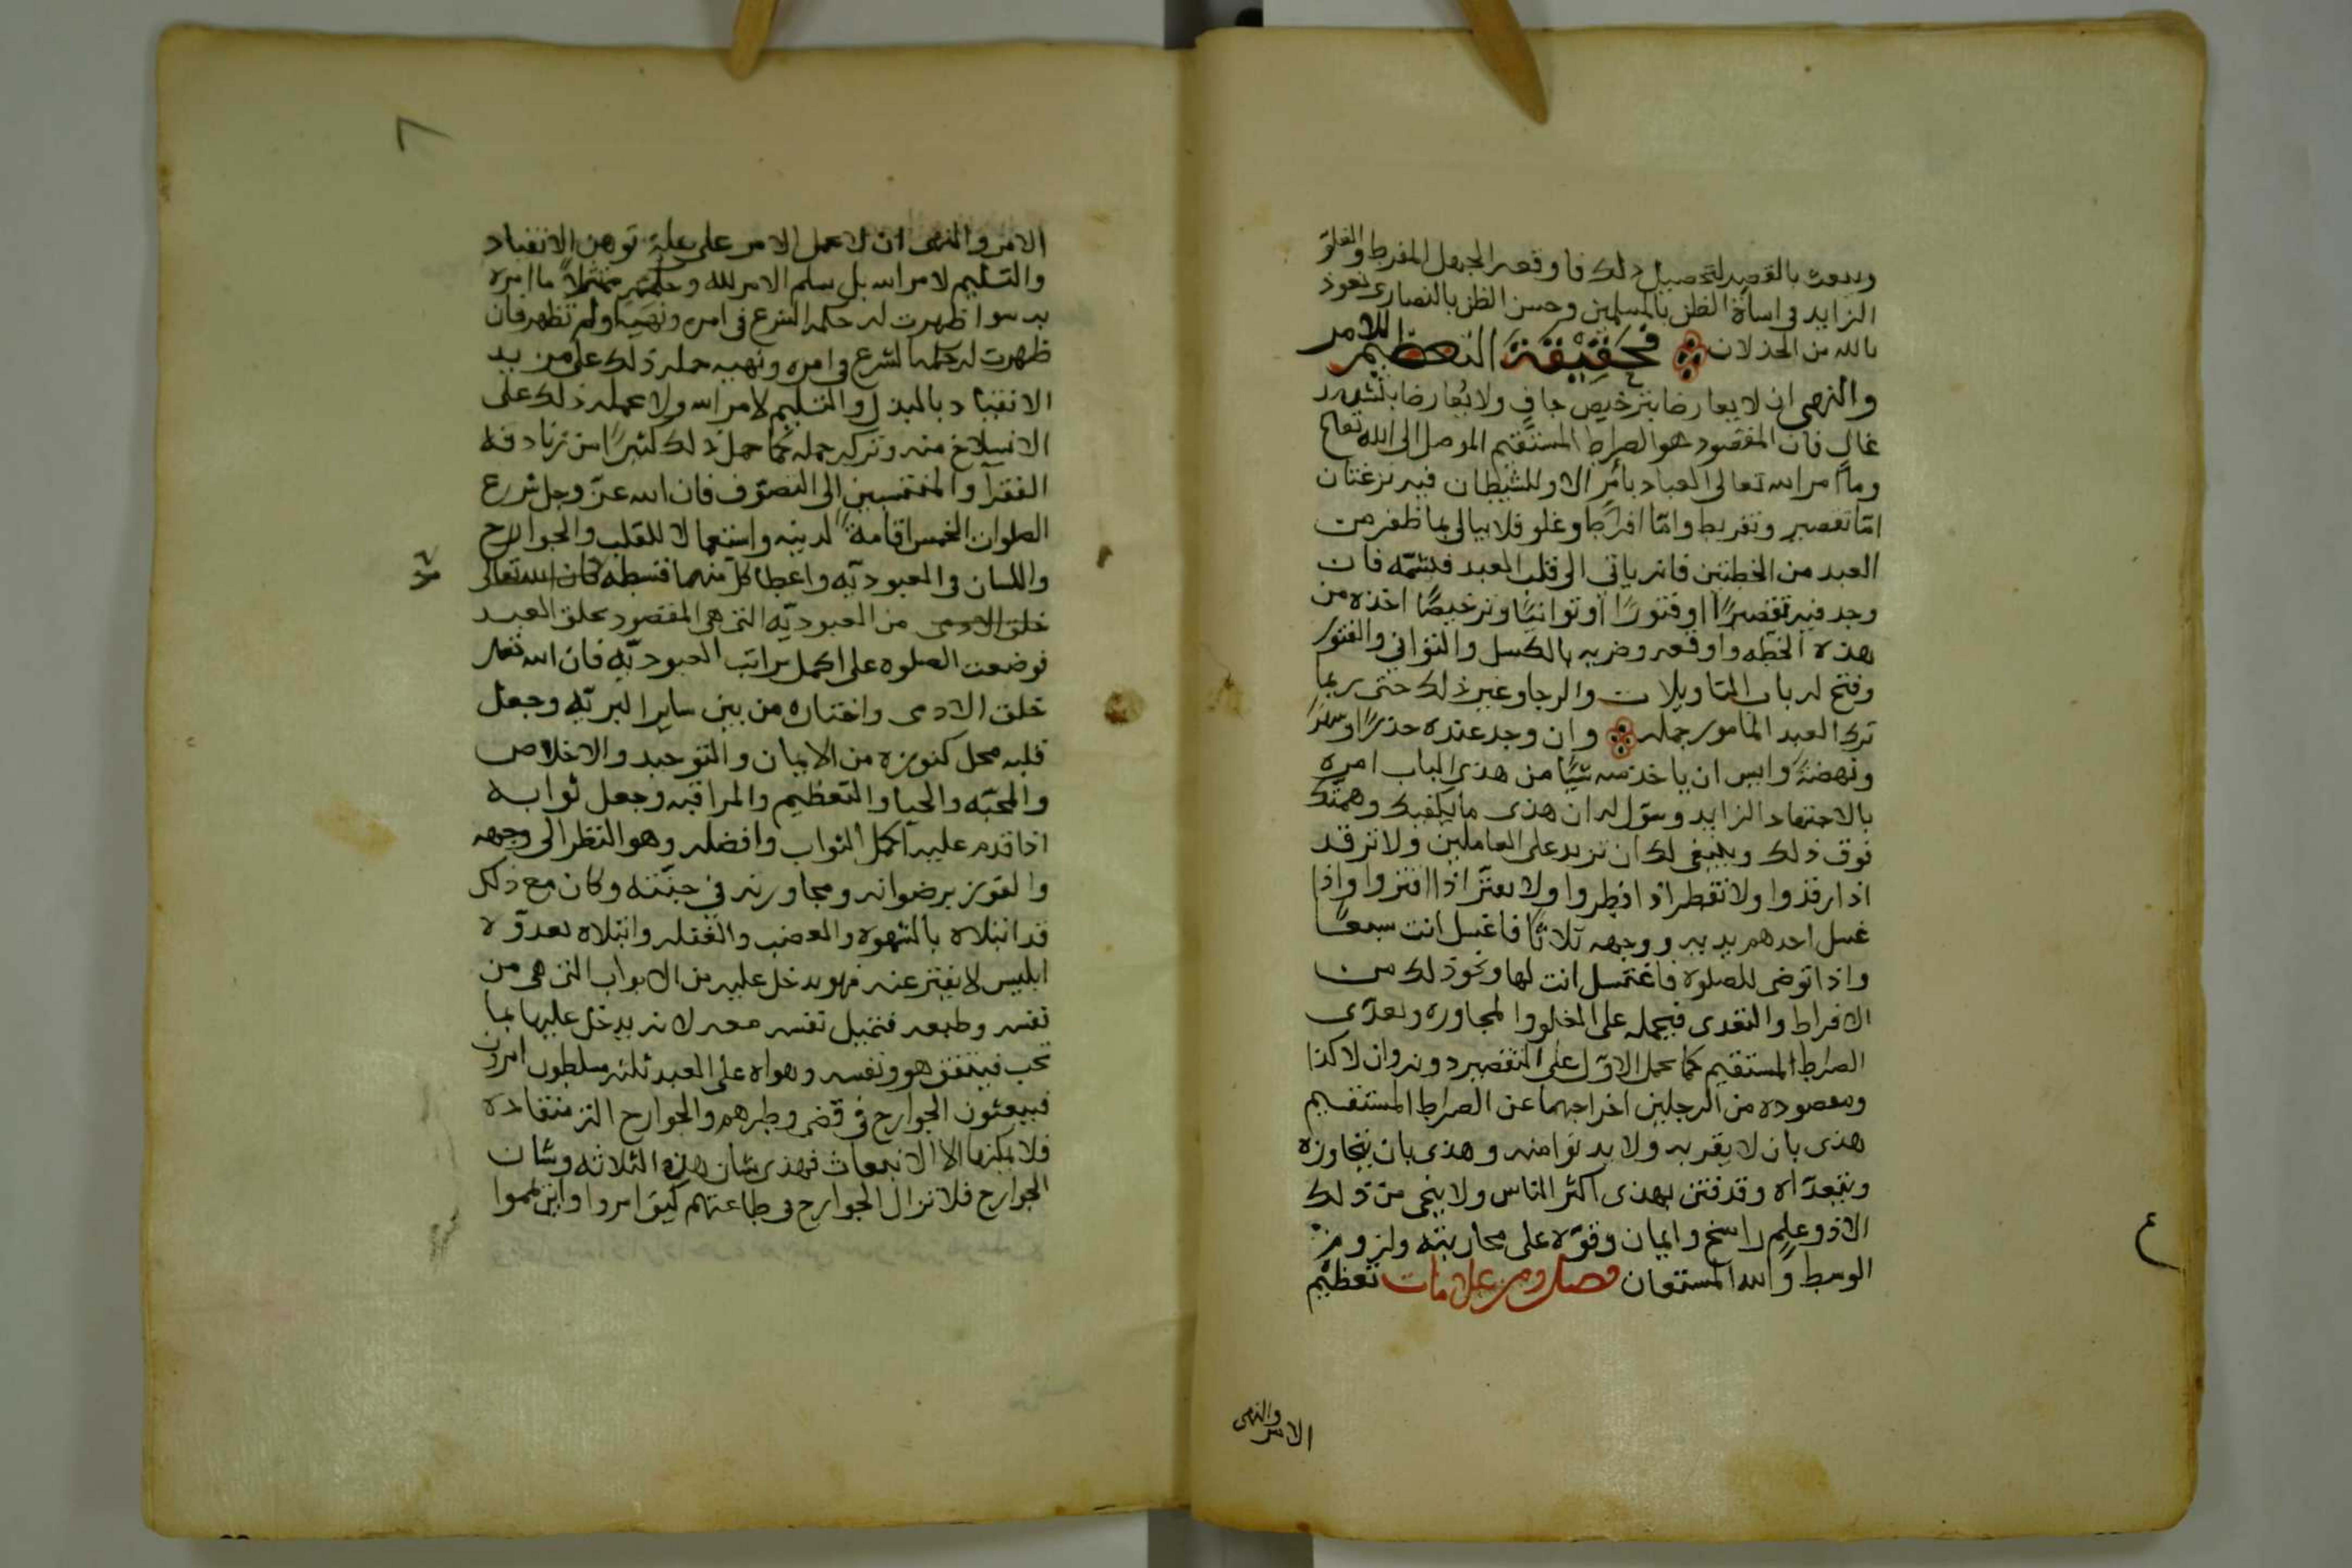 ويبعث بالقصد لتحصيل ذلك فاوقعه الجهل المفرط والغلو
الزايد في اساة الظن بالمسلمين وحسن الظن بالنصارى نعوذ
بالله من الخذلان فحقيقة التعظيم للامر
والنهي ان لا يعارضا بترخيص جافٍ ولا يُعارضا بتشديد
غالٍ فان المقصود هو الصراط المستقيم الموصل الى الله تعالى
وما امر الله تعالى العباد بأمرٍ الا وللشيطان فيه نزغتان
امّا تقصير وتفريط وامّا افراط وغلو فلا يبالي بما ظفر من
العبد من الخطتين فانه ياتي الى قلب العبد فيشمّه فان
وجد فيه تقصيرًا او فتورًا او توانيًا وترخيصًا اخذه من
هذه الخطّه واوقعه وضربه بالكسل والتواني والفتور
وفتح له باب التاويلات والرجا وغير ذلك حتى ربما
ترك العبد المامور جمله وان وجد عنده حذرًا و
ونهضةً وايس ان ياخذ منه شيًا من هذى الباب امره
بالاجتهاد الزايد وسوّل له ان هذى ما يكفيك وهمتك
فوق ذلك وينبغي لك ان تزيد على العاملين ولا ترقد
اذا رقدوا ولا تفطر اذ افطروا ولا تفتر اذا افتروا واذا
غسل احدهم يديه ووجهه ثلاثًا فاغسل انت سبعًا
واذا توضى للصلوة فاغتسل انت لها ونحو ذلك من
الافراط والتعدى فيحمله على الغلو والمجاوزه وتعدّى
الصراط المستقيم كما يحمل الاوّل على التقصير دونه وان لا كذا
ومقصوده من الرجلين اخراجهما عن الصراط المستقيم
هذى بان لا يقربه ولا يدنوا منه وهذى بان يتجاوزه
ويتعدّاه وقد فتن بهذى اكثر الناس ولا ينجى من ذلك
الا ذو علمٍ راسخ وايمان وقوّه على محاربته ولزوم
الوسط والله المستعان فصل ومن علامات تعظيم
الامر والنهى
٤
٧
الامر والنهى ان لا يحمل الامر على علة توهن الانقياد
والتسليم لامر الله بل يسلم الامر لله وحكمته ممتثلاً ما امره
به سوا ظهرت له حكمه الشرع في امره ونهيه او لم تظهر فان
ظهرت له حكمه الشرع في امره ونهيه حمله ذلك على مزيد
الانقياد بالبذل والتسليم لامر الله ولا يحمله ذلك على
الانسلاخ منه وتركه جمله كما حمل ذلك كثيرًا من زنادقه
الفقرآ والمنتسبين الى التصوّف فان الله عزّ وجل شرع
الصلوات الخمس اقامة لدينه واستعمالا للقلب والجوارح
واللسان في العبوديّه واعطا كلّ منهما قسطه فان الله تعالى
خلق الادمى من العبوديّه التى هي المقصود بخلق العبد
فوضعت الصلوه على اكمل مراتب العبوديّه فان الله تعالى
خلق الادمى واختاره من بين ساير البريّه وجعل
قلبه محل كنوزه من الايمان والتوحيد والاخلاص
والمحبّه والحيا والتعظيم والمراقبه وجعل ثوابه
اذا قدم عليه اكمل الثواب وافضله وهو النظر الى وجهه
والفوز برضوانه ومجاورته في جنّته وكان مع ذلك
قد ابتلاه بالشهوه والغضب والغفله وابتلاه بعدوّه
ابليس لا يفتر عنه فهو يدخل عليه من الابواب التى هي من
نفسه وطبعه فتميل نفسه معه لانه يدخل عليها بما
تحب فيتفق هو ونفسه وهواه على العبد ثلثه مسلطون امرون
فيبعثون الجوارح في قضى وطرهم والجوارح اله منقاده
فلا يمكنها الا الانبعاث فهذى شان هذه الثلاثه وشان
الجوارح فلا تزال الجوارح في طاعتهم كيف امروا واين يمموا